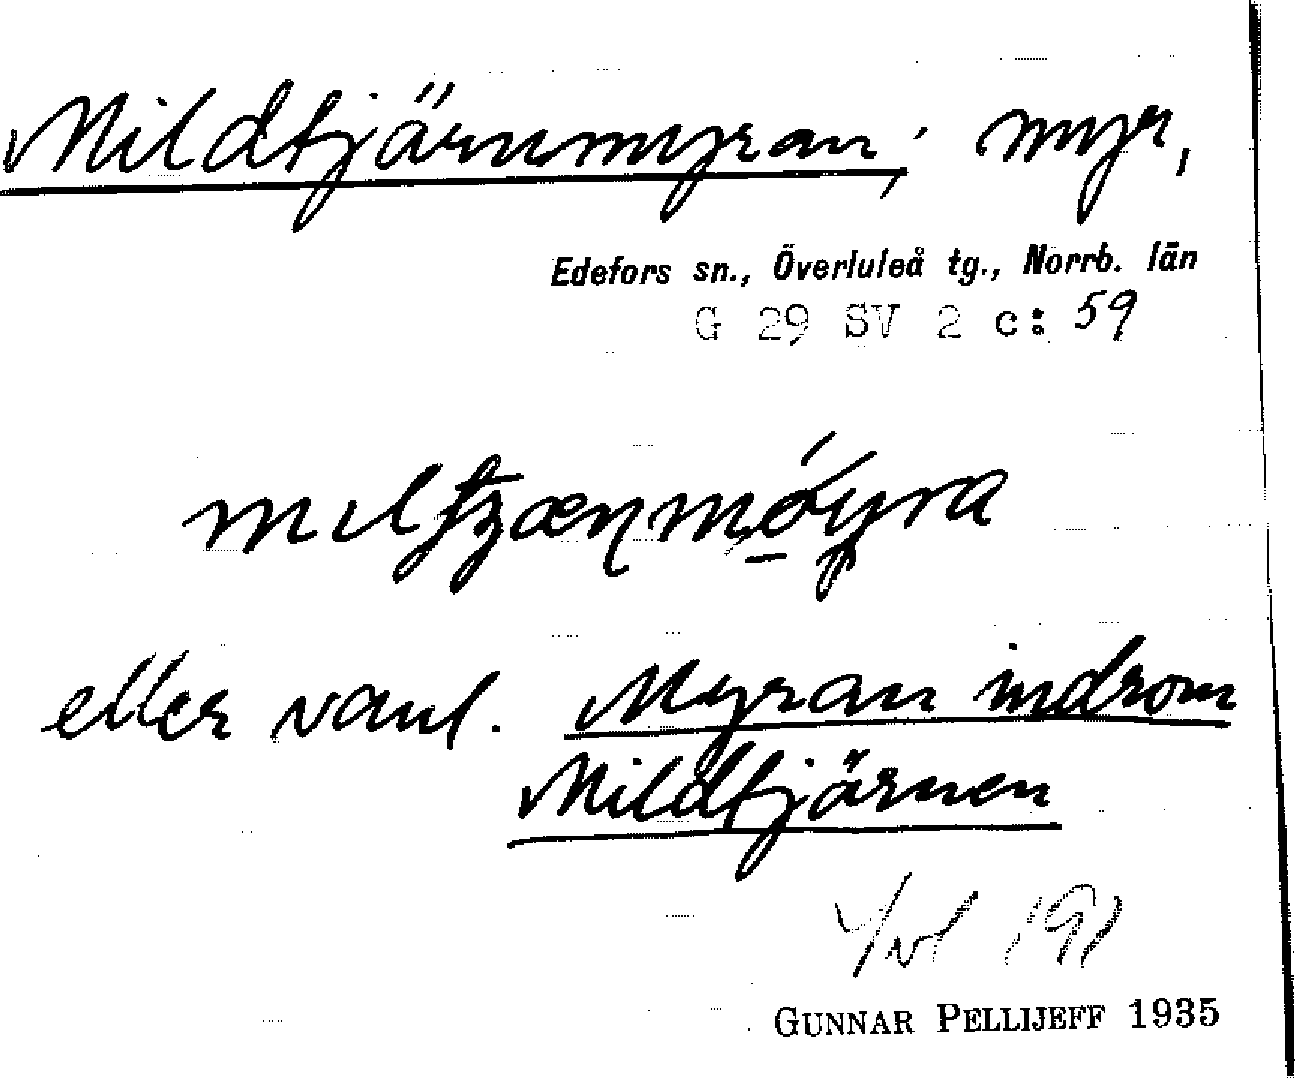 Mildtjärnmyran, myr,
Edefors sn., Överluleå tg., Norrb. län
G 29 SV 2 c: 59
eller vanl. Myran indrom
Mildtjärnen
GUNNAR PELLIJEFF 1935